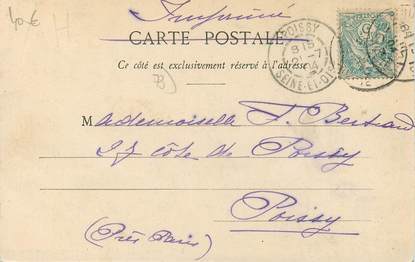 40€ H
Imprimé
CARTE POSTALE
Ce côté est exclusivement réservé à l'adresse
POISSY
8 15
-7
04
SEINE-ET-OISE
Mademoiselle F. Bertrand
27 côte de Poissy
Poissy
(Près Paris)